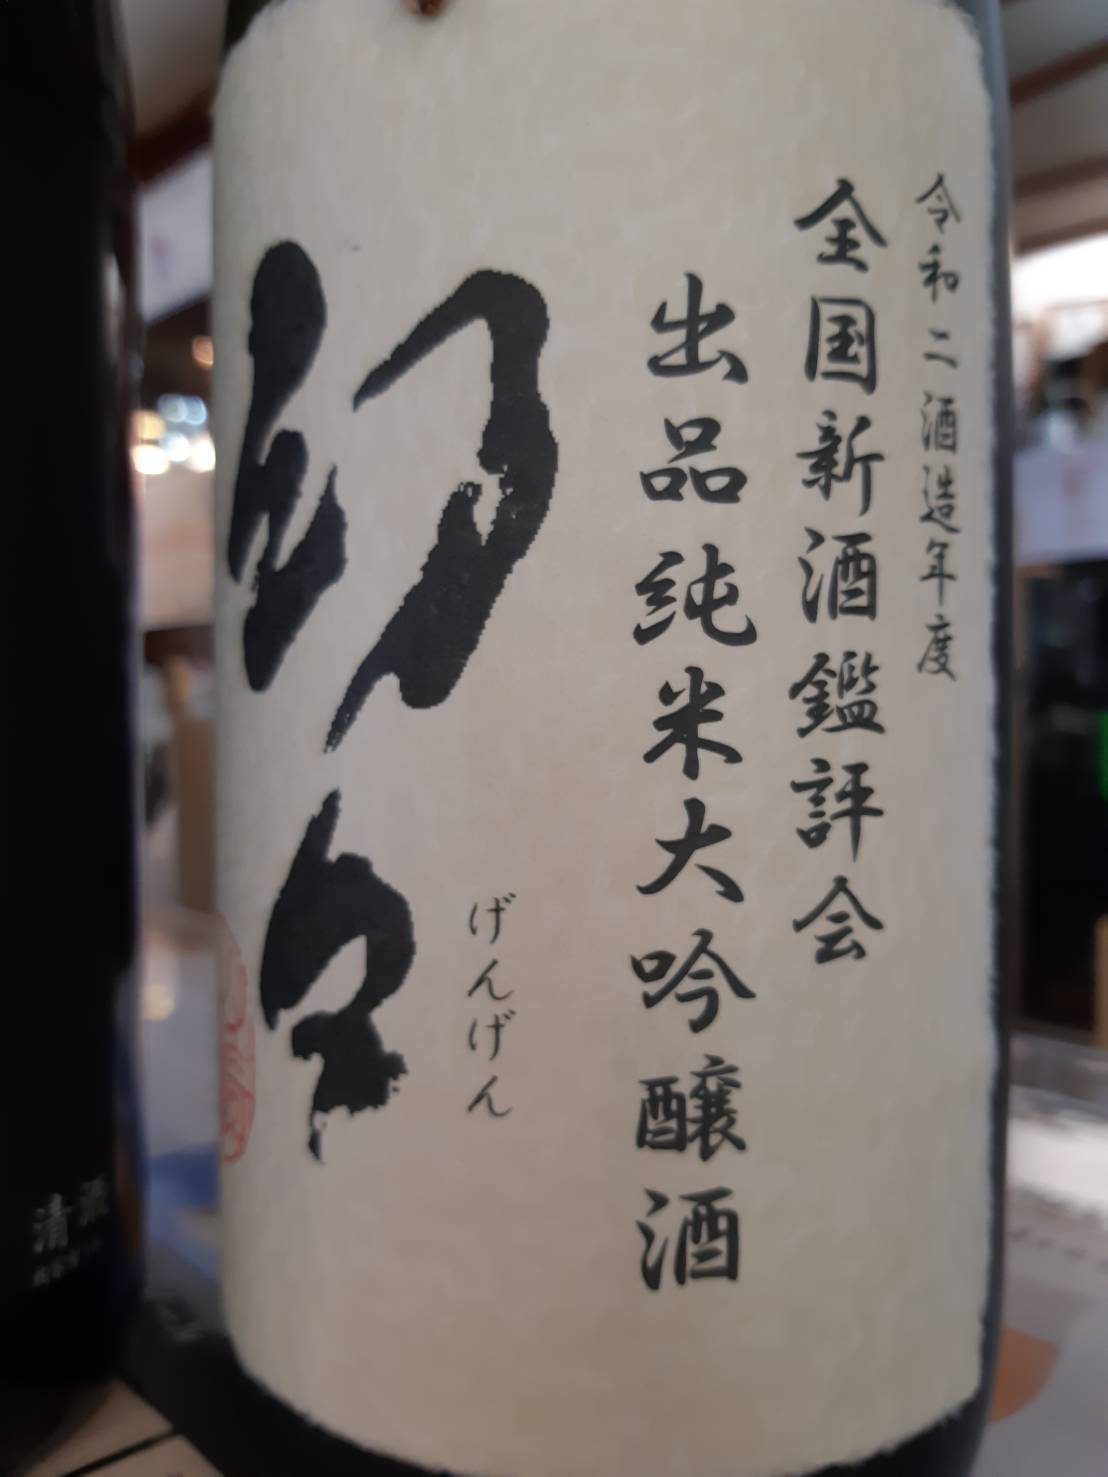 令和二酒造年度
全国新酒鑑評会
出品純米大吟醸酒
げんげん
清酒